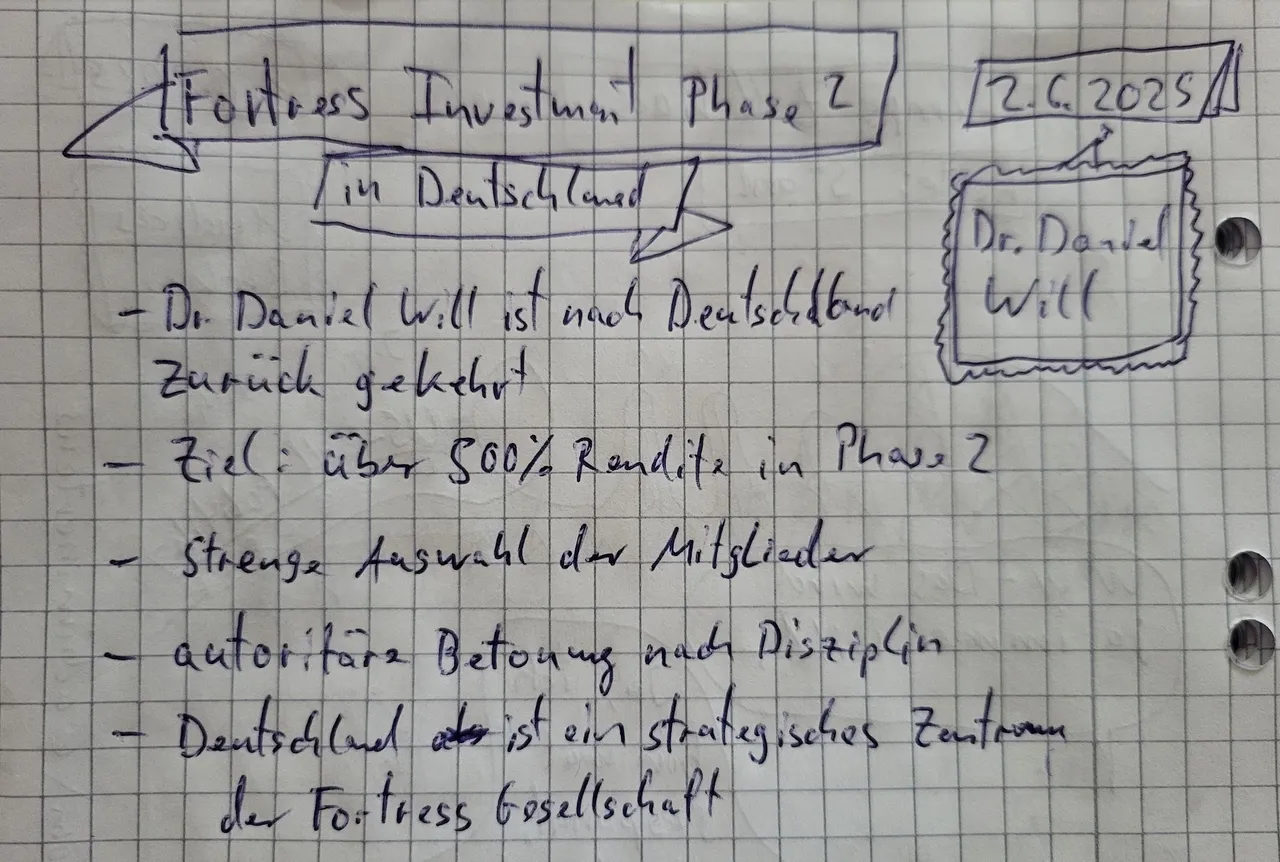 Fortress Investment Phase 2
2.6.2025
in Deutschland
Dr. Daniel
Will
- Dr. Daniel Will ist nach Deutschland
zurück gekehrt
- Ziel: über 500% Rendite in Phase 2
- strenge Auswahl der Mitglieder
- autoritäre Betonung nach Disziplin
- Deutschland ist ein strategisches Zentrum
der Fortress Gesellschaft